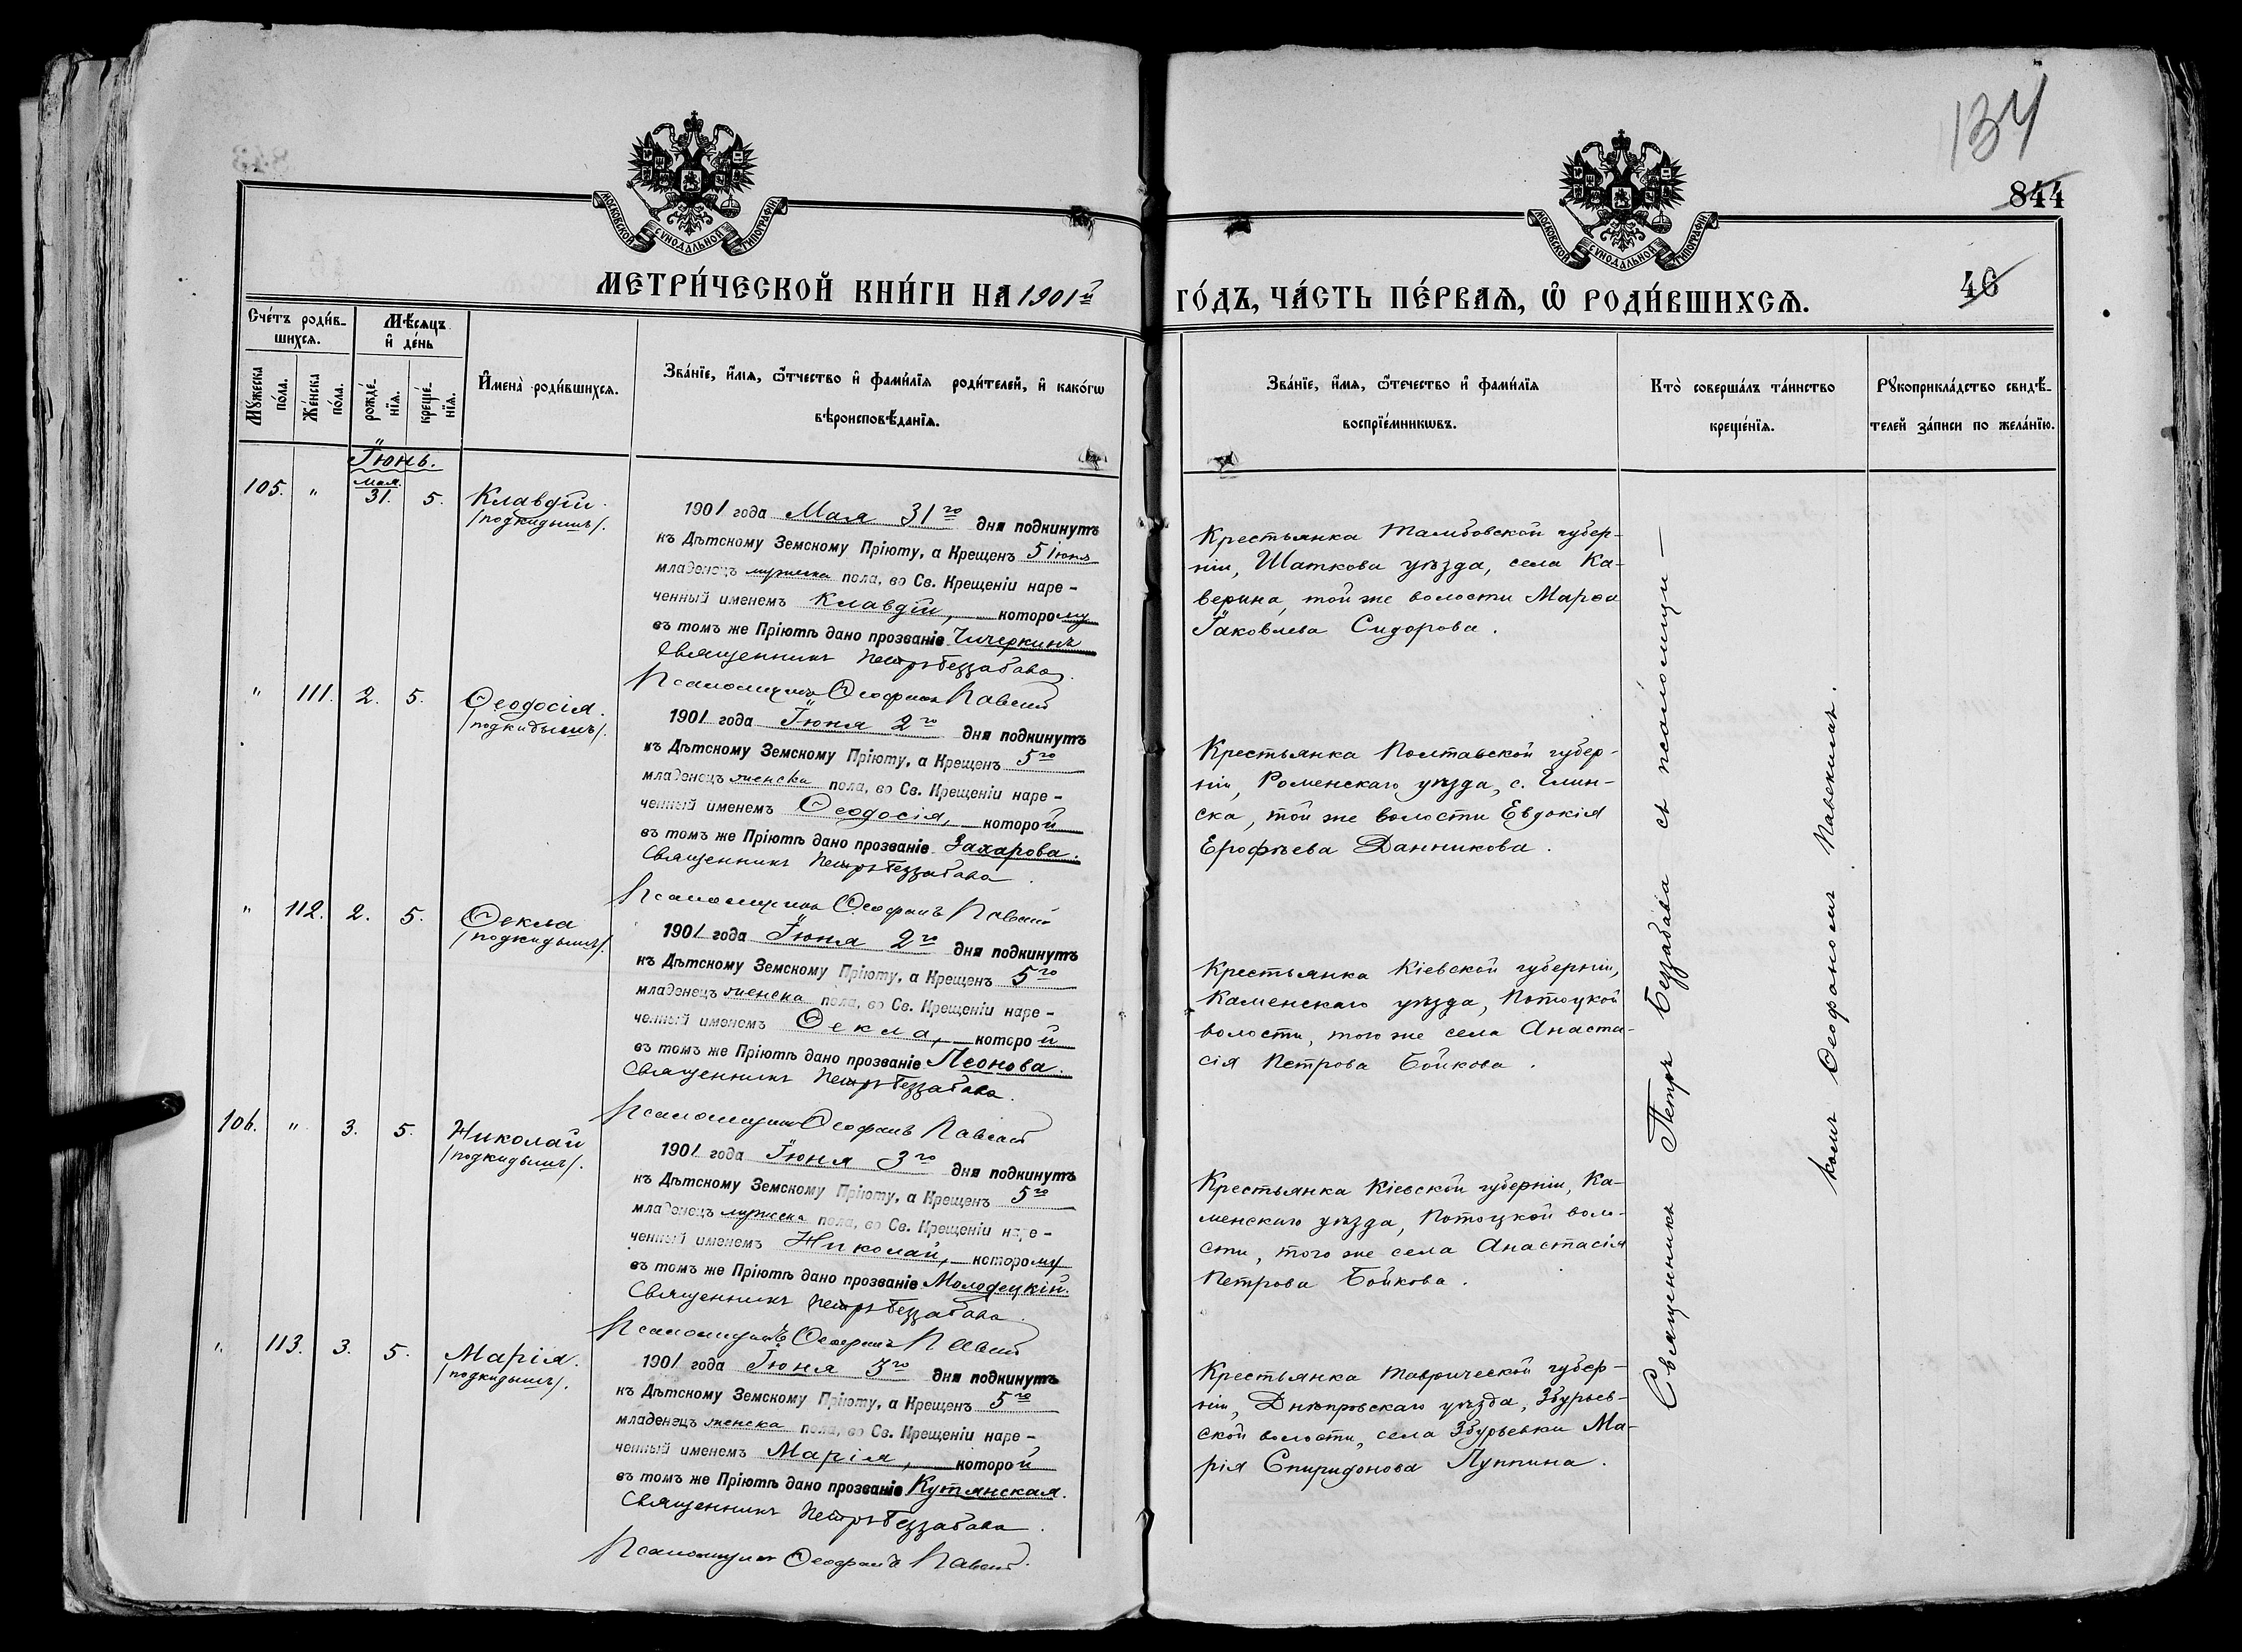 134
844
МОСКОВСКОЙ СѴНОДАЛЬНОЙ ТИПОГРАФІИ
МОСКОВСКОЙ СѴНОДАЛЬНОЙ ТИПОГРАФІИ
МЕТРИ́ЧЕСКОЙ КНИ́ГИ НА 1901й
ГО́ДЪ, ЧА́СТЬ ПЕ́РВАѦ, Ѽ РОДИ́ВШИХСѦ.
46
Сче́тъ роди́в-
шихсѧ.
Мꙋжеска по́ла.
Же́нска по́ла.
Мѣ́сѧцъ
и҆ де́нь
рожде́-
нїѧ.
креще́-
нїѧ.
И҆мена̀ роди́вшихсѧ.
Зва́нїе, и҆́мѧ, ѻ҆́тчество и҆ фами́лїѧ роди́телей, и҆ како́гѡ
вѣроисповѣ́данїѧ.
Зва́нїе, и҆́мѧ, ѻ҆те́чество и҆ фами́лїѧ
воспрїе́мникѡвъ.
Кто̀ соверша́лъ та́инство
креще́нїѧ.
Рꙋкоприкла́дство свидѣ́-
телей за́писи по жела́нїю.
Іюнь.
105. " Мая. 31. 5. Клавдій.
/подкидышъ/.
1901 года Мая 31го дня подкинутъ
къ Дѣтскому Земскому Пріюту, а Крещенъ 5 іюня
младенецъ мужеска пола, во Св. Крещеніи наре-
ченный именемъ Клавдій, которому
въ томъ же Пріютѣ дано прозваніе Чичеркинъ
Священникъ Петръ Беззабава.
Псаломщикъ Ѳеофанъ Павскій
Крестьянка Тамбовской губер-
ніи, Шаткова уѣзда, села Ка-
верина, той же волости Марѳа
Іаковлева Сидорова.
" 111. 2. 5. Ѳеодосія.
/подкидышъ/.
1901 года Іюня 2го дня подкинутъ
къ Дѣтскому Земскому Пріюту, а Крещенъ 5го
младенецъ женска пола, во Св. Крещеніи наре-
ченный именемъ Ѳеодосія, которой
въ томъ же Пріютѣ дано прозваніе Захарова.
Священникъ Петръ Беззабава.
Псаломщикъ Ѳеофанъ Павскій
Крестьянка Полтавской губер-
ніи, Роменскаго уѣзда, с. Глин-
ска, той же волости Евдокія
Ерофѣева Данникова.
" 112. 2. 5. Ѳекла
/подкидышъ/.
1901 года Іюня 2го дня подкинутъ
къ Дѣтскому Земскому Пріюту, а Крещенъ 5го
младенецъ женска пола, во Св. Крещеніи наре-
ченный именемъ Ѳекла, которой
въ томъ же Пріютѣ дано прозваніе Леонова.
Священникъ Петръ Беззабава.
Псаломщикъ Ѳеофанъ Павскій
Крестьянка Кіевской губерніи,
Каменскаго уѣзда, Потоцкой
волости, того же села Анаста-
сія Петрова Бойкова.
106. " 3. 5. Николай
/подкидышъ/.
1901 года Іюня 3го дня подкинутъ
къ Дѣтскому Земскому Пріюту, а Крещенъ 5го
младенецъ мужеска пола, во Св. Крещеніи наре-
ченный именемъ Николай, которому
въ томъ же Пріютѣ дано прозваніе Молодецкій.
Священникъ Петръ Беззабава.
Псаломщикъ Ѳеофанъ Павскій
Крестьянка Кіевской губерніи, Ка-
менскаго уѣзда, Потоцкой воло-
сти, того же села Анастасія
Петрова Бойкова.
" 113. 3. 5. Марія.
/подкидышъ/.
1901 года Іюня 3го дня подкинутъ
къ Дѣтскому Земскому Пріюту, а Крещенъ 5го
младенецъ женска пола, во Св. Крещеніи наре-
ченный именемъ Марія, которой
въ томъ же Пріютѣ дано прозваніе Кутянская.
Священникъ Петръ Беззабава.
Псаломщикъ Ѳеофанъ Павскій.
Крестьянка Таврической губер-
ніи, Днѣпровскаго уѣзда, Збурьев-
ской волости, села Збурьевки Ма-
рія Спиридонова Луппина.
Священникъ Петръ Беззабава съ псаломщи-
комъ Ѳеофаномъ Павскимъ.